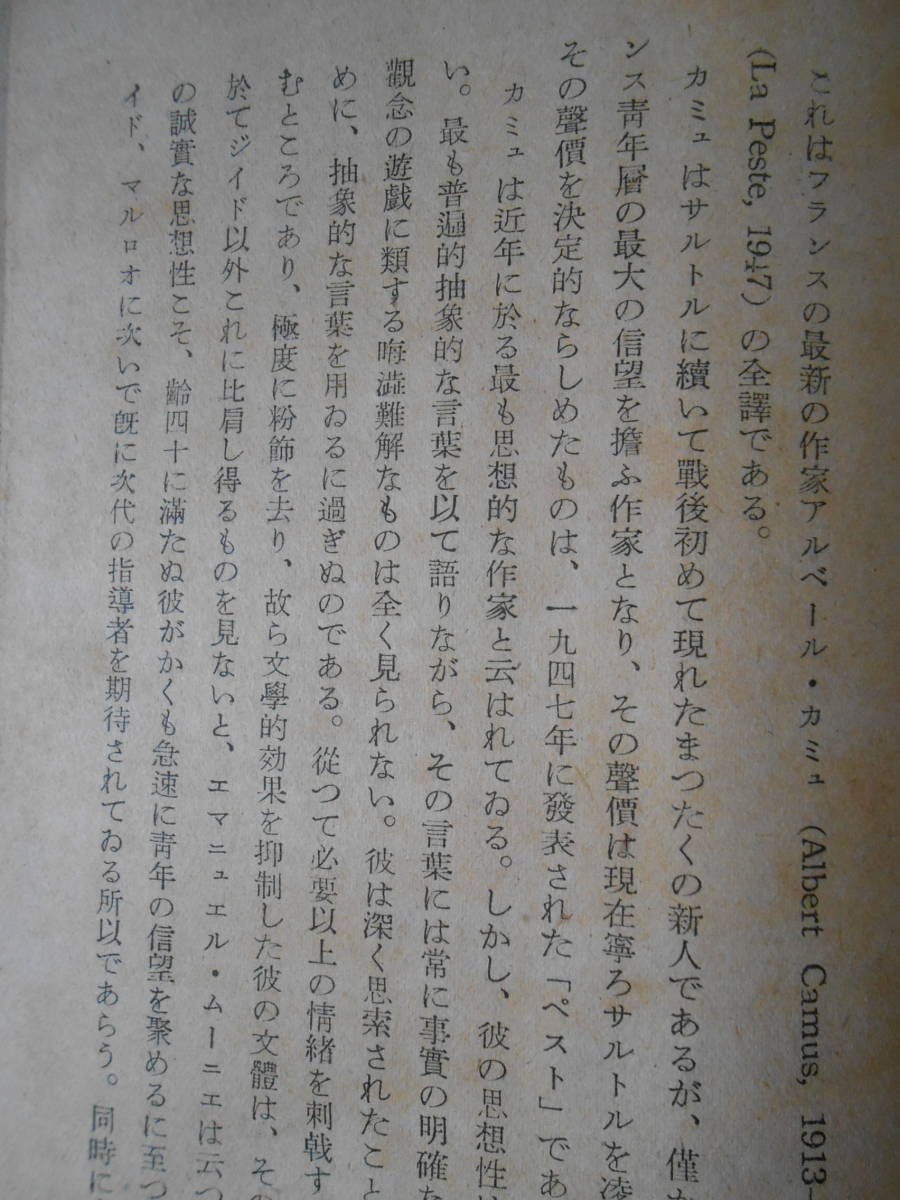 これはフランスの最新の作家アルベール・カミュ (Albert Camus, 1913-
(La Peste, 1947) の全譯である。
カミュはサルトルに續いて戰後初めて現れたまつたくの新人であるが、僅か
ンス靑年層の最大の信望を擔ふ作家となり、その聲價は現在寧ろサルトルを凌
その聲價を決定的ならしめたものは、一九四七年に發表された「ペスト」であ
カミュは近年に於る最も思想的な作家と云はれてゐる。しかし、彼の思想性は
い。最も普遍的抽象的な言葉を以て語りながら、その言葉には常に事實の明確な
觀念の遊戲に類する晦澁難解なものは全く見られない。彼は深く思索されたこと
めに、抽象的な言葉を用ゐるに過ぎぬのである。從つて必要以上の情緖を刺戟す
むところであり、極度に粉飾を去り、故ら文學的効果を抑制した彼の文體は、その
於てジイド以外これに比肩し得るものを見ないと、エマニュエル・ムーニエは云つ
の誠實な思想性こそ、齡四十に滿たぬ彼がかくも急速に靑年の信望を聚めるに至つ
イド、マルロオに次いで旣に次代の指導者を期待されてゐる所以であらう。同時に